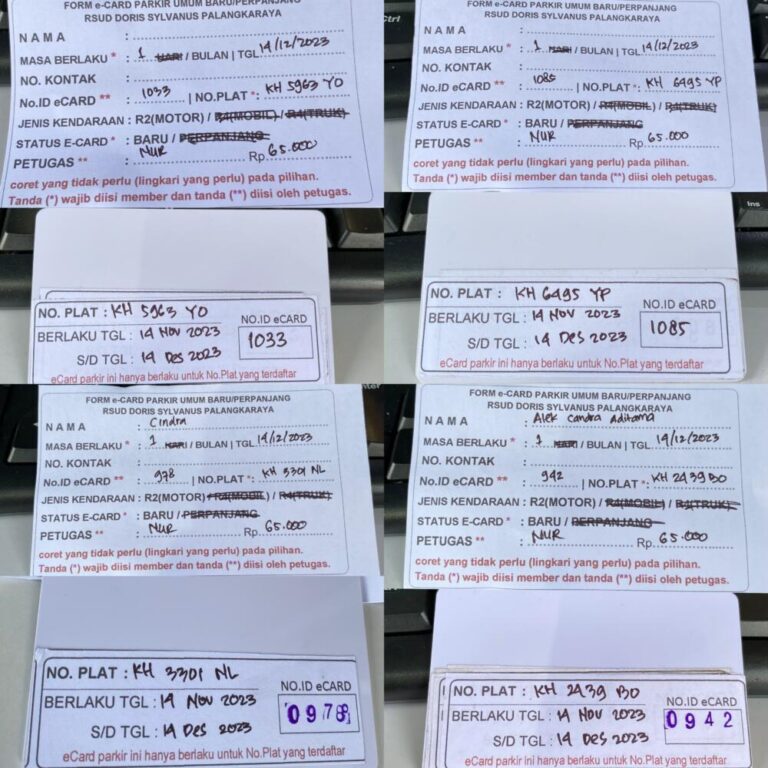 FORM e-CARD PARKIR UMUM BARU/PERPANJANG
RSUD DORIS SYLVANUS PALANGKARAYA
NAMA :
MASA BERLAKU * : 1 HARI / BULAN | TGL 14/12/2023
NO. KONTAK :
No.ID eCARD ** : 1033 | NO.PLAT *: KH 5963 YO
JENIS KENDARAAN : R2(MOTOR) / R4(MOBIL) / R4(TRUK)
STATUS E-CARD * : BARU / PERPANJANG
PETUGAS ** : NUR Rp. 65.000
coret yang tidak perlu (lingkari yang perlu) pada pilihan.
Tanda (*) wajib diisi member dan tanda (**) diisi oleh petugas.
FORM e-CARD PARKIR UMUM BARU/PERPANJANG
RSUD DORIS SYLVANUS PALANGKARAYA
NAMA :
MASA BERLAKU * : 1 HARI / BULAN | TGL 14/12/2023
NO. KONTAK :
No.ID eCARD ** : 1085 | NO.PLAT *: KH 6495 YP
JENIS KENDARAAN : R2(MOTOR) / R4(MOBIL) / R4(TRUK)
STATUS E-CARD * : BARU / PERPANJANG
PETUGAS ** : NUR Rp. 65.000
coret yang tidak perlu (lingkari yang perlu) pada pilihan.
Tanda (*) wajib diisi member dan tanda (**) diisi oleh petugas.
NO. PLAT : KH 5963 YO
NO.ID eCARD
BERLAKU TGL : 14 Nov 2023
1033
S/D TGL : 14 Des 2023
eCard parkir ini hanya berlaku untuk No.Plat yang terdaftar
Ins
NO. PLAT : KH 6495 YP
NO.ID eCARD
BERLAKU TGL : 14 Nov 2023
1085
S/D TGL : 14 Des 2023
eCard parkir ini hanya berlaku untuk No.Plat yang terdaftar
FORM e-CARD PARKIR UMUM BARU/PERPANJANG
RSUD DORIS SYLVANUS PALANGKARAYA
NAMA : Cindra
MASA BERLAKU * : 1 HARI / BULAN | TGL 14/12/2023
NO. KONTAK :
No.ID eCARD ** : 978 | NO.PLAT *: KH 3301 NL
JENIS KENDARAAN : R2(MOTOR) / R4(MOBIL) / R4(TRUK)
STATUS E-CARD * : BARU / PERPANJANG
PETUGAS ** : NUR Rp. 65.000
coret yang tidak perlu (lingkari yang perlu) pada pilihan.
Tanda (*) wajib diisi member dan tanda (**) diisi oleh petugas.
FORM e-CARD PARKIR UMUM BARU/PERPANJANG
RSUD DORIS SYLVANUS PALANGKARAYA
NAMA : Alek Candra Aditama
MASA BERLAKU * : 1 HARI / BULAN | TGL 14/12/2023
NO. KONTAK :
No.ID eCARD ** : 942 | NO.PLAT *: KH 2439 BO
JENIS KENDARAAN : R2(MOTOR) / R4(MOBIL) / R4(TRUK)
STATUS E-CARD * : BARU / PERPANJANG
PETUGAS ** : NUR Rp. 65.000
coret yang tidak perlu (lingkari yang perlu) pada pilihan.
Tanda (*) wajib diisi member dan tanda (**) diisi oleh petugas.
NO. PLAT : KH 3301 NL
NO.ID eCARD
BERLAKU TGL : 14 Nov 2023
0978
S/D TGL : 14 Des 2023
eCard parkir ini hanya berlaku untuk No.Plat yang terdaftar
NO. PLAT : KH 2439 BO
NO.ID eCARD
BERLAKU TGL : 14 Nov 2023
0942
S/D TGL : 14 Des 2023
eCard parkir ini hanya berlaku untuk No.Plat yang terdaftar